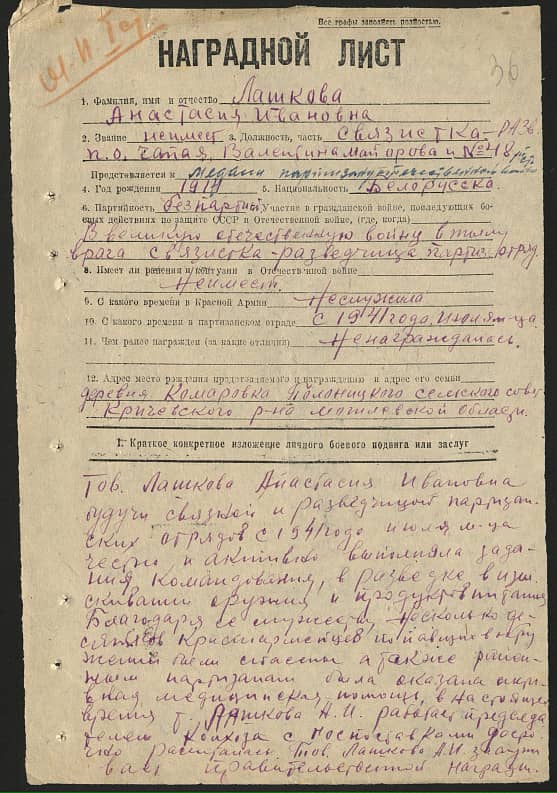 Все графы заполнять полностью.
НАГРАДНОЙ ЛИСТ
36
1. Фамилия, имя и отчество Лашкова
Анастасия Ивановна
2. Звание неимеет 3. Должность, часть связистка-разв.
п.о. Чапая, Валентина Майорова и №48
Представляется к медали партизану отечественной войны
4. Год рождения 1914 5. Национальность Белорусска
6. Партийность безпартийн. Участие в гражданской войне, последующих боевых
действиях по защите СССР и Отечественной войне, (где, когда)
В великую отечественную войну в тылу
врага связистка-разведчица партиз. отряд.
8. Имеет ли ранения и контузии в Отечественной войне
Неимеет.
9. С какого времени в Красной Армии Неслужила
10. С какого времени в партизанском отряде с 1941 года, июля м-ца
11. Чем ранее награжден (за какие отличия) Ненаграждалась.
12. Адрес место рождения представляемого к награждению и адрес его семьи
деревня Комаровка Полоницкого сельского совет
Кричевского р-на Могилевской области.
I. Краткое конкретное изложение личного боевого подвига или заслуг
Тов. Лашкова Анастасия Ивановна
будучи связной и разведчицой партизан-
ских отрядов с 1941 года июля м-ца
честно и активно выполняла зада-
ния командования, в разведке в изы-
скивании оружия и продуктов питания
Благодаря ее служению несколько де-
сятков красноармейцев попавших в окру
жении были спасены а также ранен-
ным партизанам была оказана актив-
ная медицинская помощь, в настоящее
время т. Лашкова А.И. работает председа
телем колхоза с поставками досро-
чно расчиталась Тов. Лашкова А.И. заслужи
вает Правительственной Награды.